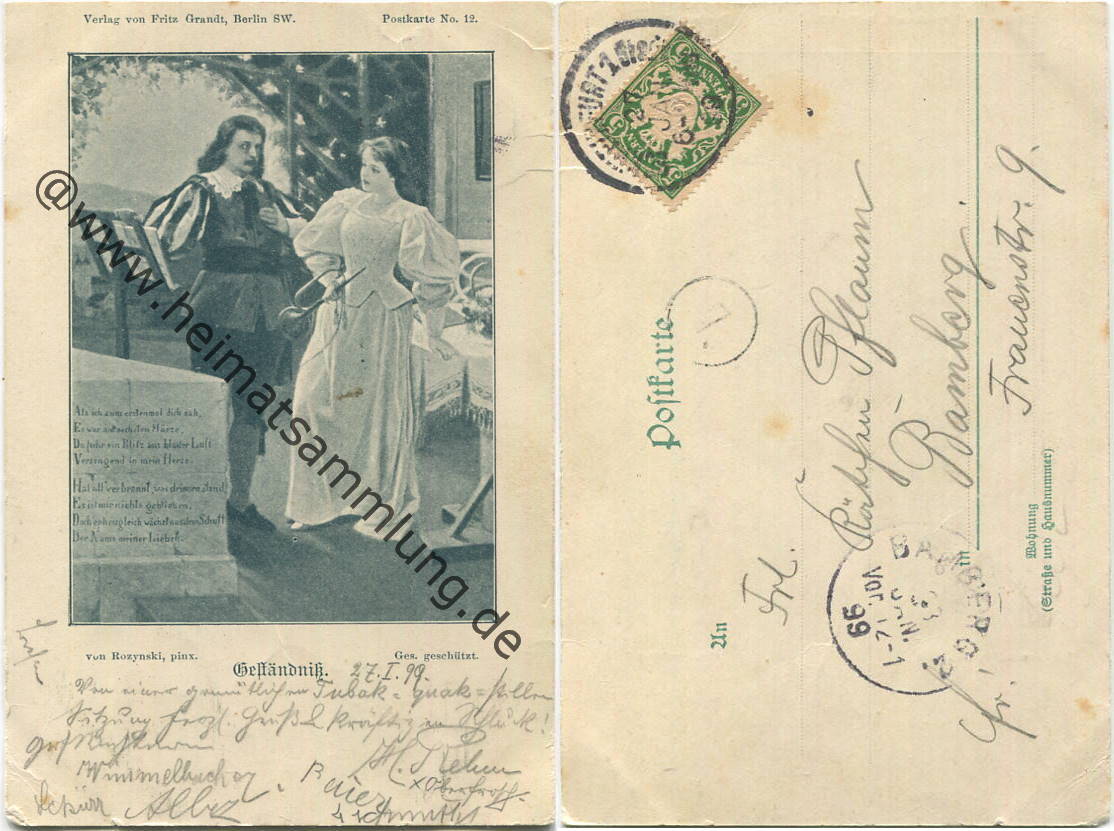 Verlag von Fritz Grandt, Berlin SW. Postkarte No. 12.
Als ich zum erstenmal dich sah,
Es war am sechsten Märze,
Da fuhr ein Blitz aus blauer Luft
Versengend in mein Herze.
Hat all verbrannt, was drinnen stand,
Es ist mir nichts geblieben,
Doch epheugleich wächst aus dem Schutt
Der Name meiner Lieben.
von Rozynski, pinx. Ges. geschützt.
Geständniß. 27.I.99.
Von einer gemütlichen Tubak = quak =
Sitzung herzl. Gruß & kräftigen Schluck!
Wimmelbacher
H. Rehm
Baier
x Oberfrosch.
@www.heimatsammlung.de
BAYERN
Postkarte
An
Frl. Käthchen Pflaum
in Bamberg.
Frauenstr. 9.
Wohnung
(Straße und Hausnummer)
BAMBERG 2.
28 JAN
99